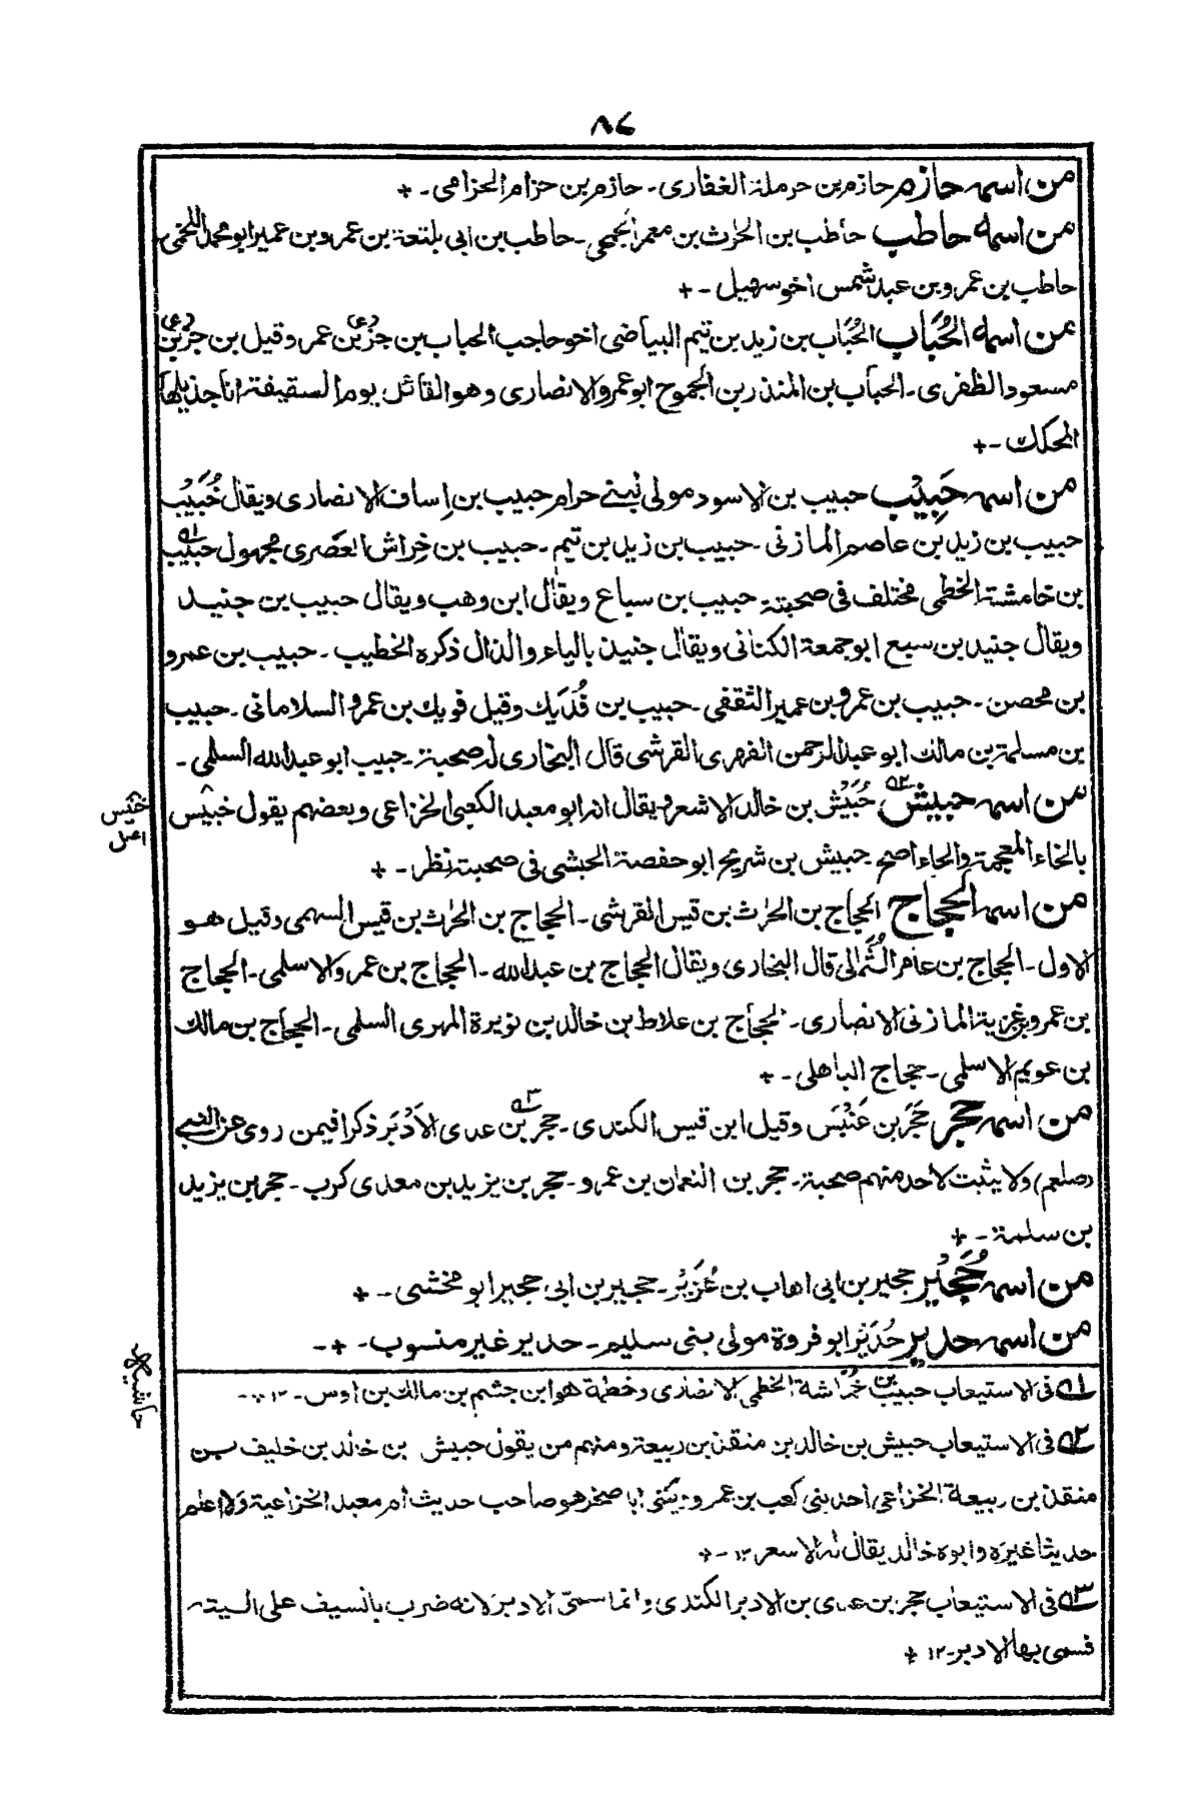 ٨٤
من اسمه حازم حازم بن حرملة الغفاري ـ حازم بن حزام الحزامي ـ +
من اسمه حاطب حاطب بن الحٰرث بن معمر الجمحي ـ حاطب بن ابي بلتعة بن عمرو بن عمير ابو محمد اللخمي ـ
حاطب بن عمرو بن عبد شمس اخو سهيل ـ +
من اسمه الحُبَاب الحُبَاب بن زيد بن تيم البياضي اخو حاجب الحباب بن جزء (ع) بن عمر وقيل بن جزء (ع) بن
مسعود الظفري ـ الحباب بن المنذر بن الجموح ابو عمرو الانصاري وهو القائل يوم السقيفة انا جذيلها
المحكك ـ +
من اسمه حَبِيْب حبيب بن الاسود مولى بني حرام حبيب بن اِساف الانصاري ويقال خُبَيْب
حبيب بن زيد بن عاصم المازني ـ حبيب بن زيد بن تيم ـ حبيب بن خِراش العصري مجهول حبيب ١ه
بن خامشة الخطمي مختلف في صحبته حبيب بن سباع ويقال ابن وهب ويقال حبيب بن جنيد
ويقال جنيد بن سبع ابو جمعة الكناني ويقال جنيذ بالياء والذال ذكره الخطيب ـ حبيب بن عمرو
بن محصن ـ حبيب بن عمرو بن عمير الثقفي ـ حبيب بن فُدَيك وقيل فويك بن عمرو السلاماني ـ حبيب
بن مسلمة بن مالك ابو عبد الرحمن الفهري القرشي قال البخاري له صحبة ـ حبيب ابو عبد الله السلمي ـ
من اسمه حبيش ٢ه حُبَيْش بن خالد الاشعر ويقال انه ابو معبد الكعبي الخزاعي وبعضهم يقول خبيس
بالخاء المعجمة والحاء اصح حبيش بن شريح ابو حفصة الحبشي في صحبته نظر ـ +
خنيس
اصل
من اسمه الحجاج الحجاج بن الحٰرث بن قيس القرشي ـ الحجاج بن الحٰرث بن قيس السهمي وقيل هو
الاول ـ الحجاج بن عامر الثُّمالي قال البخاري ويقال الحجاج بن عبد الله ـ الحجاج بن عمرو الاسلمي ـ الحجاج
بن عمرو بن غزية المازني الانصاري ـ الحجاج بن علاط بن خالد بن نويرة المهري السلمي ـ الحجاج بن مالك
بن عويم الاسلمي ـ حجاج الباهلي ـ +
من اسمه حجر حَجَر بن عَنْبَس وقيل ابن قيس الكندي ـ حجر ٣ه بن عدي الاَدْبَر ذكرا فيمن روى عن النبي
(صلعم) ولا يثبت لاحد منهم صحبة ـ حجر بن النعمان بن عمرو ـ حجر بن يزيد بن معدي كرب ـ حجر بن يزيد
بن سلمة ـ +
من اسمه حُجَيْر حجير بن ابي اهاب بن عُزَيْز ـ حجير بن ابي حجير ابو مخشي ـ +
من اسمه حدير حُدَيْر ابو فروة مولى بني سليم ـ حدير غير منسوب ـ + ـ
حاشيه
١ه في الاستيعاب حبيب بن خُمَاشة الخطمي الانصاري وخطمة هو ابن جشم بن مالك بن اوس ـ ١٢ + ـ
٢ه في الاستيعاب حبيش بن خالد بن منقذ بن ربيعة ومنهم من يقول حبيش بن خالد بن خليف بن
منقذ بن ربيعة الخزاعي احد بني كعب بن عمرو يكنى ابا صخر هو صاحب حديث ام معبد الخزاعية ولا اعلم
حديثا غيره وابوه خالد يقال له الاسعر ١٢ ـ +
٣ه في الاستيعاب حجر بن عدي بن الادبر الكندي وانما سمّى الادبر لانه ضرب بالسيف على اليته
فسمى بها الادبر ـ ١٢ +